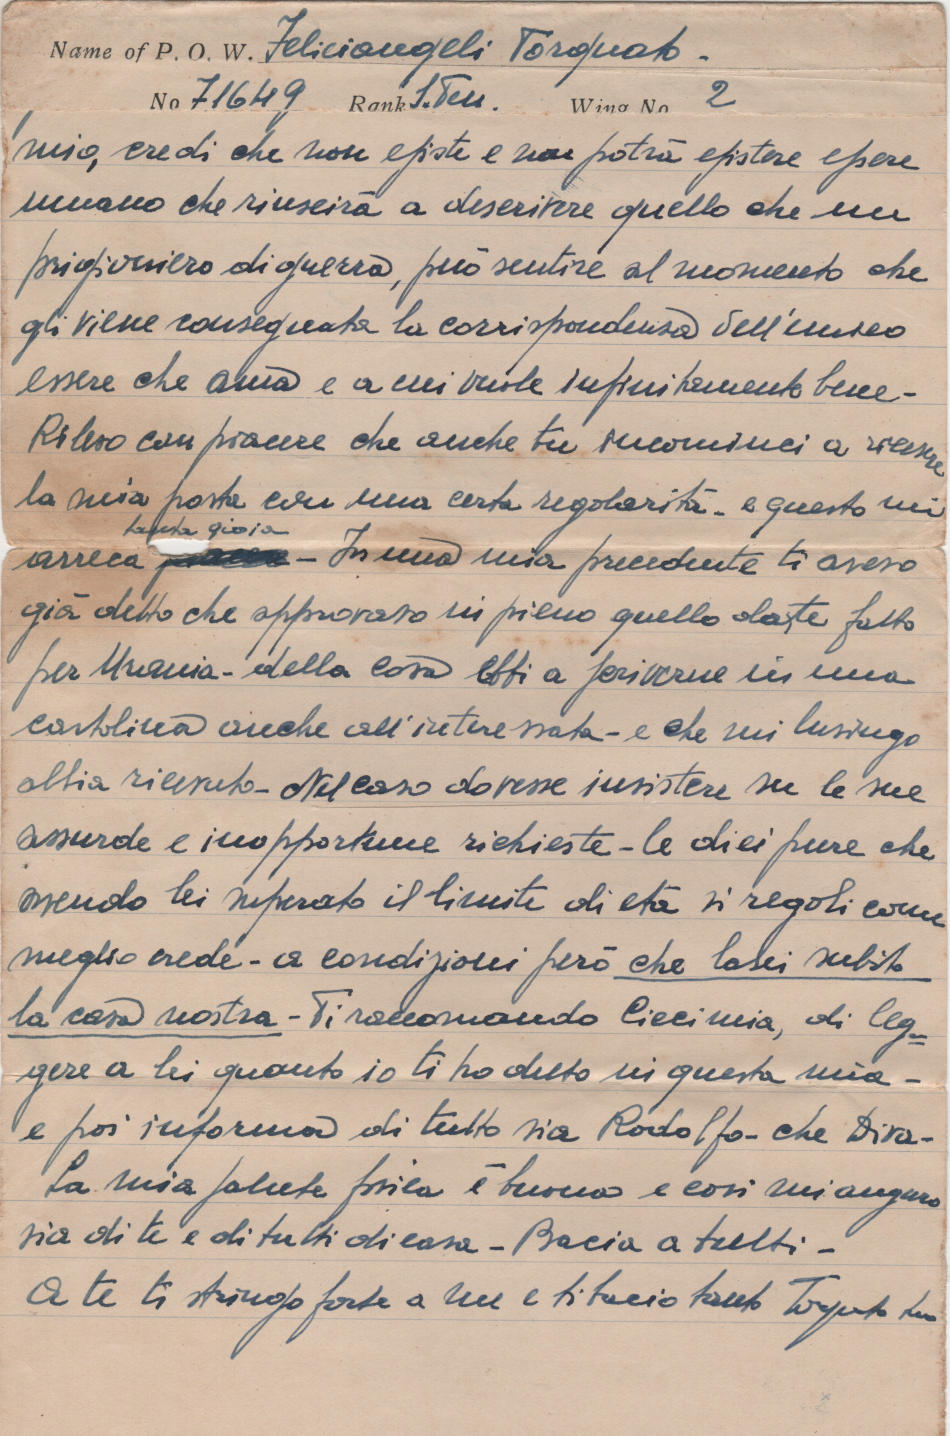 Name of P. O. W. Feliciangeli Torquato -
No 71649 Rank S. Ten. Wing No 2
mia, credi che non esiste e non potrà esistere essere
umano che riuscirà a descrivere quello che un
prigioniero di guerra, può sentire al momento che
gli viene consegnata la corrispondenza dell'unico
essere che ama e a cui vuole infinitamente bene -
Rilevo con piacere che anche tu incominci a ricevere
la mia posta con una certa regolarità - e questo mi
tanta gioia
arreca - In una mia precedente ti avevo
già detto che approvavo in pieno quello che avete fatto
per Urania - della cosa ebbi a scriverne in una
cartolina anche all'interessata - e che mi lusingo
abbia ricevuto - Nel caso dovesse insistere su le sue
assurde e inopportune richieste - le dici pure che
essendo lei superato il limite di età si regoli come
meglio crede - a condizioni però che lasci subito
la casa nostra - Ti raccomando Cicci mia, di leg=
gere a lei quanto io ti ho detto in questa mia -
e poi informa di tutto sia Rodolfo - che Diva -
La mia salute fisica è buona e così mi auguro
sia di te e di tutti di casa - Bacia a tutti -
A te ti stringo forte a me e ti bacio tanto Torquato tuo